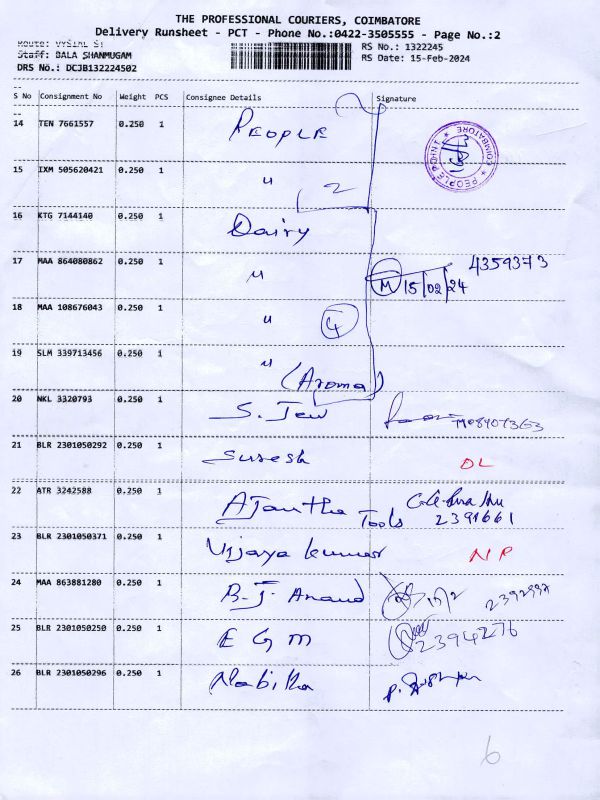 THE PROFESSIONAL COURIERS, COIMBATORE
Delivery Runsheet - PCT - Phone No.:0422-3505555 - Page No.:2
RS No.: 1322245
Staff: BALA SHANMUGAM RS Date: 15-Feb-2024
DRS No.: DCJB132224502
S No Consignment No Weight PCS Consignee Details Signature
14 TEN 7661557 0.250 1 PEOPLE
COIMBATORE ★ PEOPLE
15 IXM 505620421 0.250 1 " 2
16 KTG 7144140 0.250 1 Dairy
17 MAA 864080862 0.250 1 " M 15/02/24 4359373
18 MAA 108676043 0.250 1 " 4
19 SLM 339713456 0.250 1 "
(Aroma)
20 NKL 3320793 0.250 1 S. Jew
21 BLR 2301050292 0.250 1 Suresh DL
22 ATR 3242588 0.250 1 Ajantha Tools 2391661
23 BLR 2301050371 0.250 1 Vijaya kumar NP
24 MAA 863881280 0.250 1 B.J. Anand 15/2
25 BLR 2301050250 0.250 1 E G M 2394276
26 BLR 2301050296 0.250 1
6